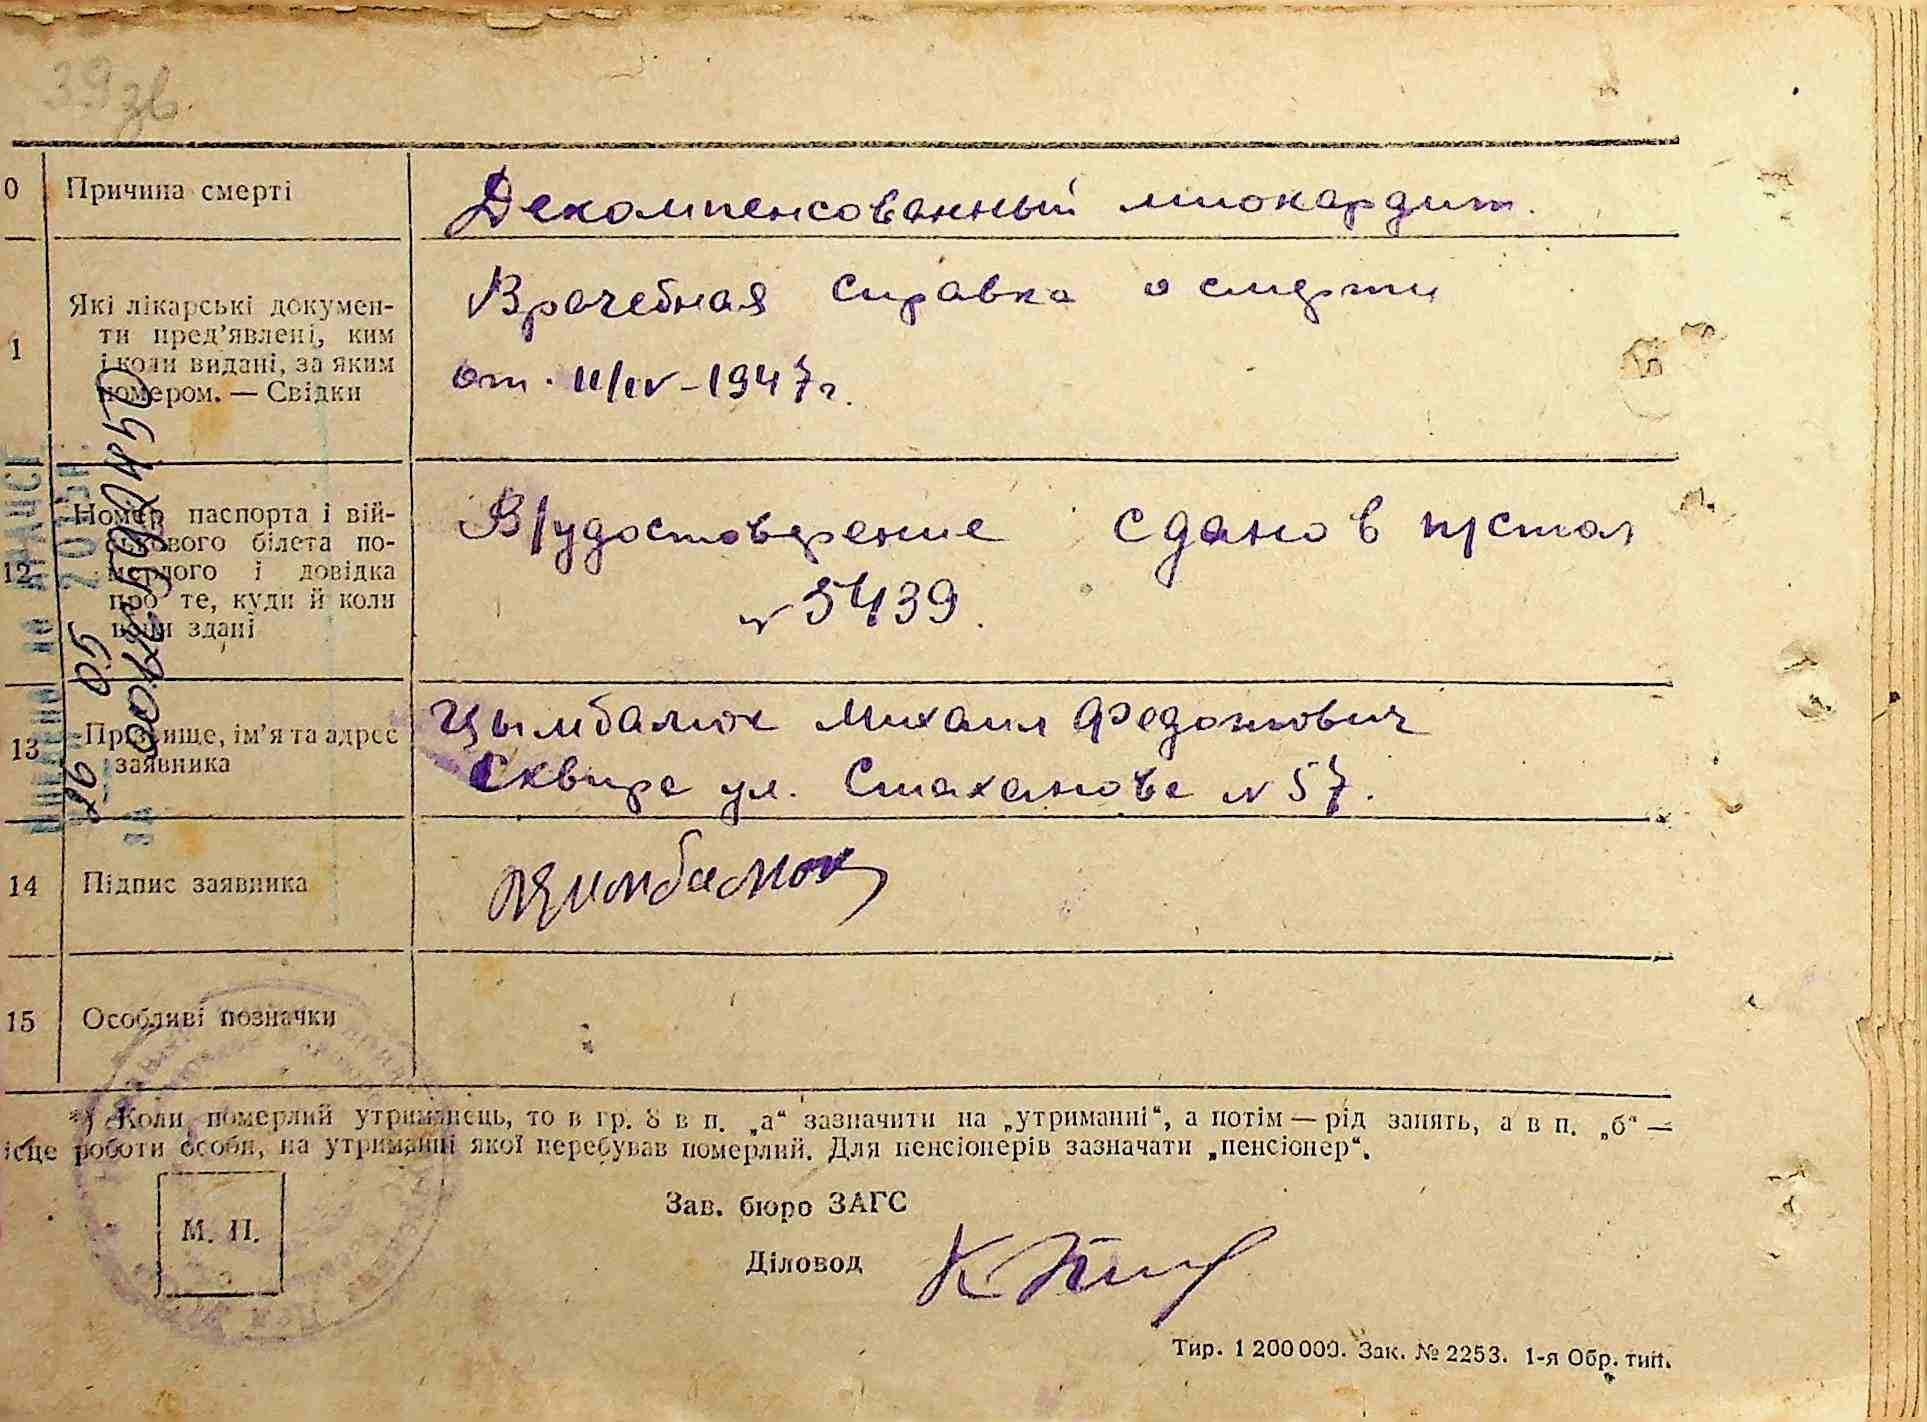 39зв.
0 Причина смерті
Декомпенсованный миокардит.
1 Які лікарські докумен-
ти пред’явлені, ким
і коли видані, за яким
номером. — Свідки
Врачебная справка о смерти
от. 11/IV – 1947 г.
12 Номер паспорта і вій-
ськового білета по-
мерлого і довідка
про те, куди й коли
вони здані
В/удостоверение сдано в п/стол
№ 5439.
13 Прізвище, ім’я та адрес
заявника
Цымбалюк Михаил
Сквира ул. Стаханова № 57.
14 Підпис заявника
Цимбалюк
15 Особливі позначки
*) Коли померлий утриманець, то в гр. 8 в п. „а“ зазначити на „утриманні“, а потім — рід занять, а в п. „б“ —
ісце роботи особи, на утриманні якої перебував померлий. Для пенсіонерів зазначати „пенсіонер“.
М. П.
Зав. бюро ЗАГС
Діловод
Тир. 1 200 000. Зак. № 2253. 1-я Обр. тип.